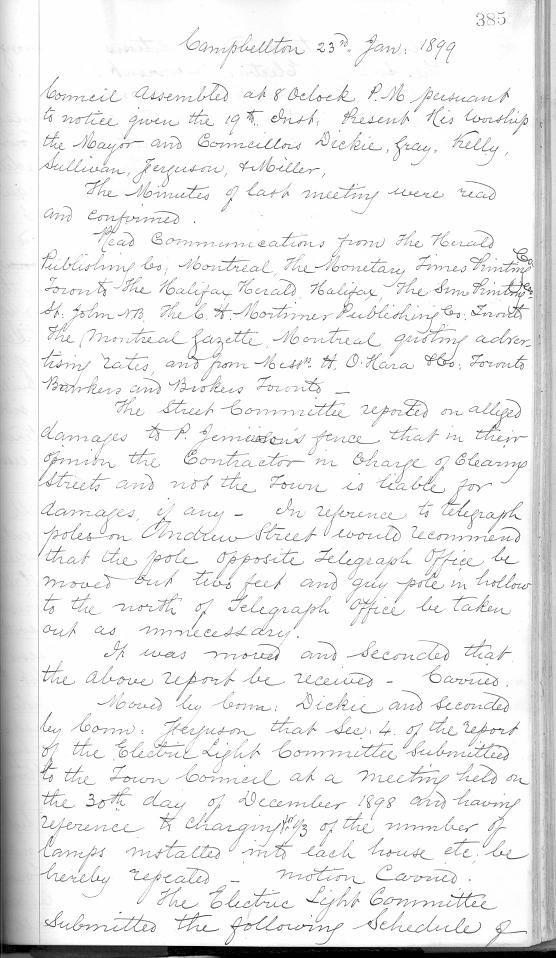 385
Campbellton 23rd. Jan: 1899
Council Assembled at 8 Oclock P.M pursuant
to notice given the 19th. Inst. Present His Worship
the Mayor and Councillors Dickie, Gray, Kelly,
Sullivan, Ferguson, & Miller,
The Minutes of last meeting were read
and confirmed.
Read Communications from The Herald
Publishing Co; Montreal, The Monetary Times Printing Co.
Toronto The Halifax Herald, Halifax, The Sun Printing Co;
St. John NB The C. H. Mortimer Publishing Co; Toronto
The Montreal Gazette, Montreal quoting adver-
tising rates, and from Messrs. H. O'Hara & Co; Toronto
Bankers and Brokers Toronto —
The Street Committee reported on alleged
damages to P. Jemieson's fence that in their
opinion the Contractor in Charge of Cleaning
Streets and not the Town is leable for
damages, if any — In reference to telegraph
poles on Andrew Street would recommend
that the pole opposite Telegraph Office be
moved out two feet and guy pole in hollow
to the north of Telegraph Office be taken
out as unnecessary.
It was moved and Seconded that
the above report be received — Carried.
Moved by Coun: Dickie and seconded
by Coun: Ferguson that Sec: 4. of the report
of the Electric Light Committee Submitted
to the Town Council at a meeting held on
the 30th day of December 1898 and having
reference to charging for 1/3 of the number of
lamps installed into each house etc; be
hereby repeated — motion Carried.
The Electric Light Committee
Submitted the following Schedule of